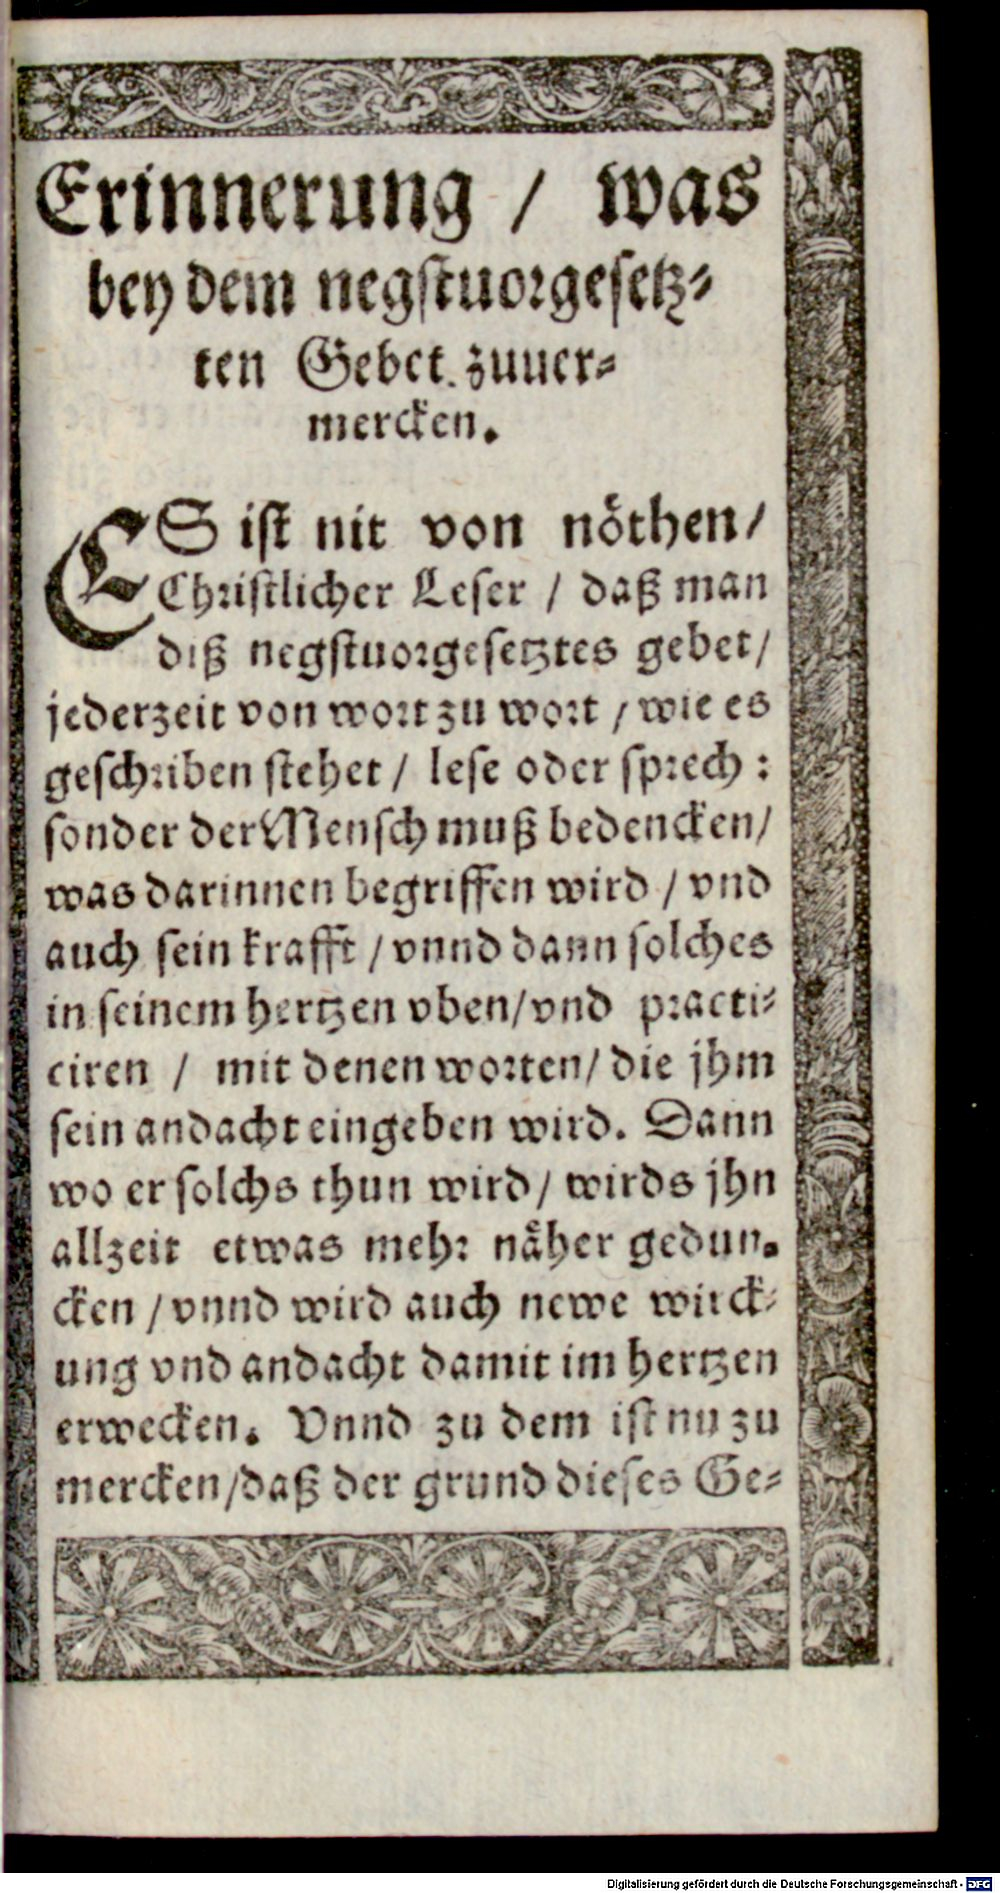 Erinnerung / was
bey dem negstuorgesetz-
ten Gebet zuuer-
mercken.
ES ist nit von nöthen/
Christlicher Leser / daß man
diß negstuorgesetztes gebet/
jederzeit von wort zu wort / wie es
geschriben stehet / lese oder sprech:
sonder der Mensch muß bedencken/
was darinnen begriffen wird / vnd
auch sein krafft / vnnd dann solches
in seinem hertzen vben/vnd practi-
ciren / mit denen worten/ die jhm
sein andacht eingeben wird. Dann
wo er solchs thun wird/ wirds jhn
allzeit etwas mehr näher gedun-
cken / vnnd wird auch newe wirck-
ung vnd andacht damit im hertzen
erwecken. Vnnd zu dem ist nu zu
mercken/daß der grund dieses Ge-
Digitalisierung gefördert durch die Deutsche Forschungsgemeinschaft - DFG